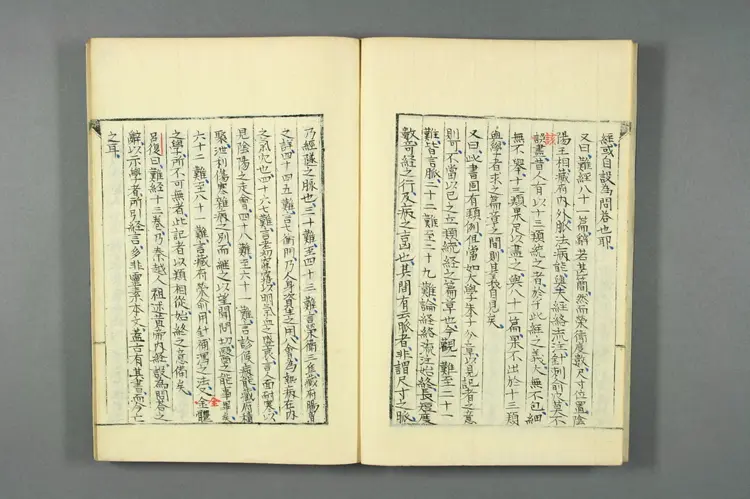 經或自設為問荅也耶
又曰難經八十一篇辭若甚簡然而榮衛度數尺寸位置陰
陽王相藏府内外脉法病能與夫經絡流注針刺俞穴莫不
該盡昔人有以十三類統之者於乎此經之義大無不包細
無不舉十三類果足以盡之與八十一篇果不出於十三類
與學者求之篇章之間則其義自見矣
又曰此書固有類例但當如大學朱子分章以見記者之意
則可不當以己之立類統經之篇章也今觀一難至二十一
難皆言脉二十二難至二十九難論經絡流注始終長短度
數奇經之行及病之吉凶也其間有云脉者非謂尺寸之脉
乃經隧之脉也三十難至四十三難言榮衛三焦藏府腸胃
之詳四十四五難言七衝門乃人身資生之用八會為熱病在内
之氣穴也四十六七難言
見陰陽之走會四十八難至六十一難言診候病能藏府積
聚泄利傷寒雜病之別而繼之以望聞問切醫之能事畢矣
六十二難至八十一難言藏府榮俞用針補瀉之法又全體
之學所不可無者此記者以類相從始終之意備矣
呂復曰難經十三卷乃秦越人祖述黃帝内經設為問荅之
辭以示學者所引經言多非靈素本文蓋古有其書而今亡
之耳